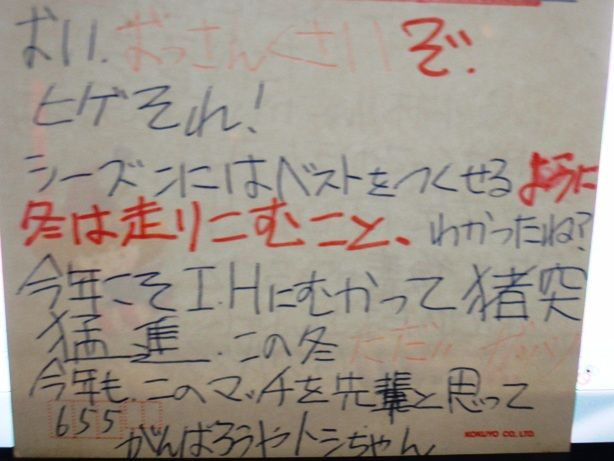 おい、おっさんくさいぞ.
ヒゲそれ!
シーズンにはベストをつくせるように
冬は走りこむこと、わかったね?
今年こそI.Hにむかって猪突
猛進.この冬ただ
今年も.このマッチを先輩と思って
655
がんばろうやトシちゃん
KOKUYO CO., LTD.